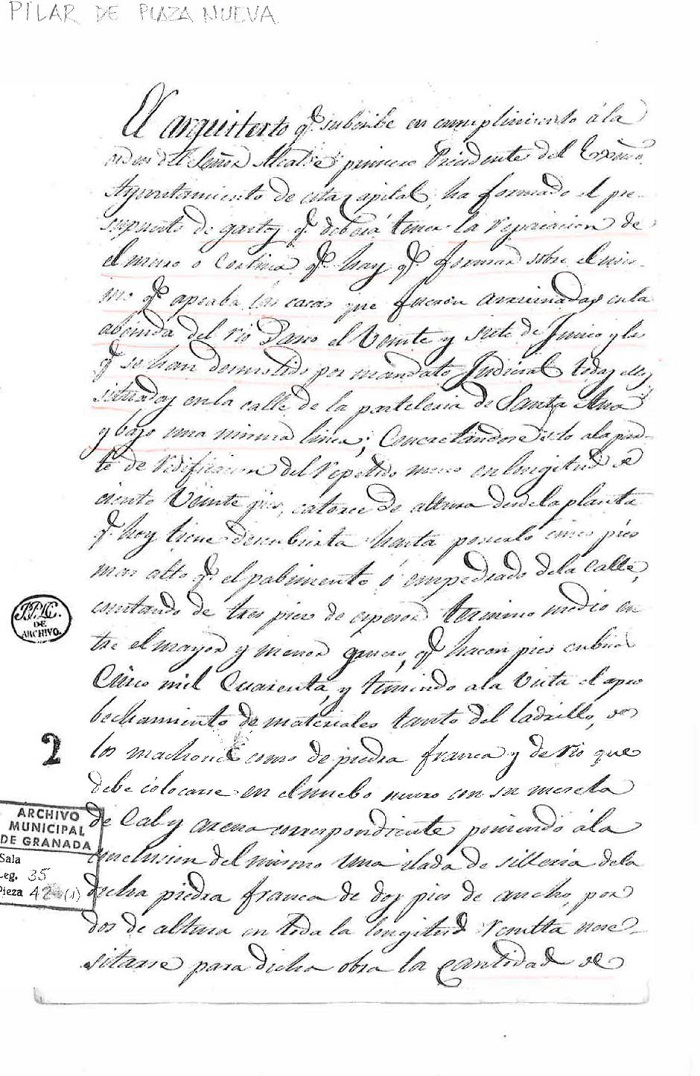 PILAR DE PLAZA NUEVA
El arquitecto qe. subscribe en cumplimiento á la
orden del Señor Alcalde primero Presidente del Exmo.
Ayuntamiento de esta Capital, ha formado el pre-
supuesto de gastos qe. deberá tener la reparacion de
el muro o Cortina qe. hay qe. formar sobre el mis-
mo qe. apeaba las casas que fueron arruinadas en la
abenida del rio Darro el Veinte y siete de Junio y las
qe. se han demolido por mandato Judicial todas ellas
situadas en la calle de la parteleria de Santa Ana
y bajo una misma linea; Concretandose esto ala par-
te de redificacion del repetido muro en longitud de
ciento Veinte pies, catorce de altura desde la planta
qe. hoy tiene descubierta hasta ponerlo cinco pies
mas alto qe. el pabimento ó empedrado dela Calle,
contando de tres pies de espesor termino medio en
tre el mayor y menor grueso, qe. hacen pies cubicos
Cinco mil Cuarenta, y teniendo ala Vista el apro
bechamiento de materiales tanto del ladrillo, de
los machones como de piedra franca y de rio que
debe colocarse en el nuebo muro con su mescla
de Cal y arena correspondiente poniendo á la
conclusion del mismo una ilada de silleria dela
dicha piedra franca de dos pies de ancho, por
dos de altura en toda la longitud resulta nece-
sitarse para dicha obra la Cantidad de
DE
ARCHIVO.
2
ARCHIVO
MUNICIPAL
DE GRANADA
Sala
Leg. 35
Pieza 42 (1)